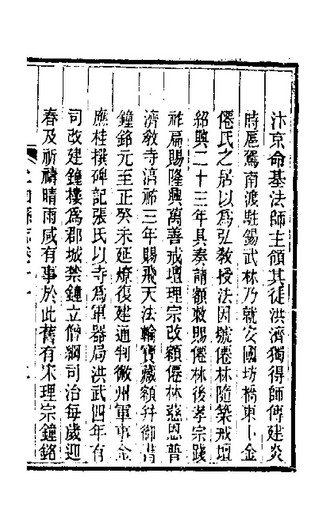 汴京命基法師主領其徒洪濟獨得師傳建炎
時扈駕南渡駐錫武林乃就安國坊橋東卜金
僊氏之居以爲弘敎授法因號僊林隨築戒壇
紹興二十三年具奏請額敕賜僊林後孝宗踐
祚扁賜隆興萬善戒壇理宗改額僊林慈恩普
濟敎寺淳祐三年賜飛天法輪寶藏額幷御書
鐘銘元至正癸未延燎復建通判徽州軍事金
應桂撰碑記張氏以寺爲軍器局洪武四年有
司改建鐘樓爲郡城禁鐘立僧綱司治每歲迎
春及祈禱晴雨咸有事於此舊有宋理宗鐘銘